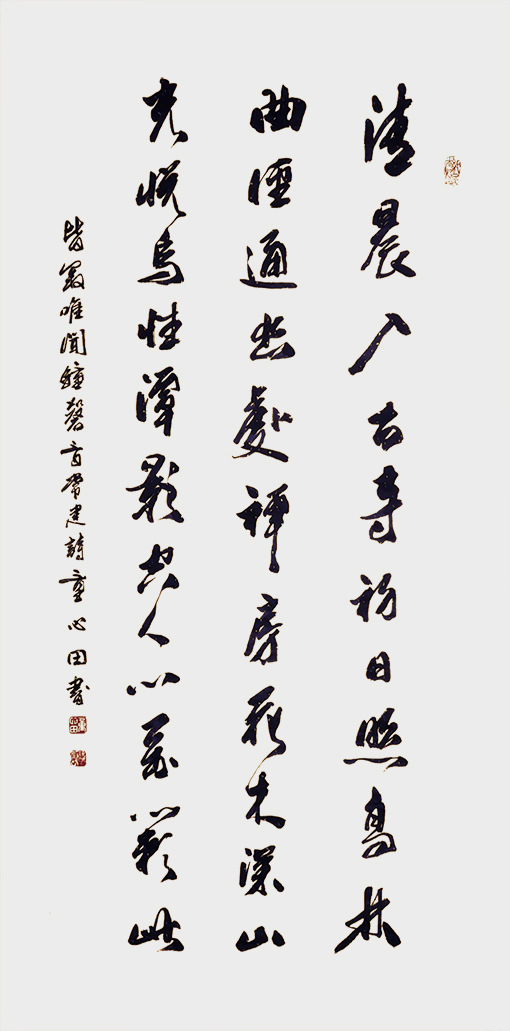 清晨入古寺初日照高林
曲徑通幽處禪房花木深山
光悅鳥性潭影空人心萬籟此
皆寂唯聞鐘磬音常建詩童心田書